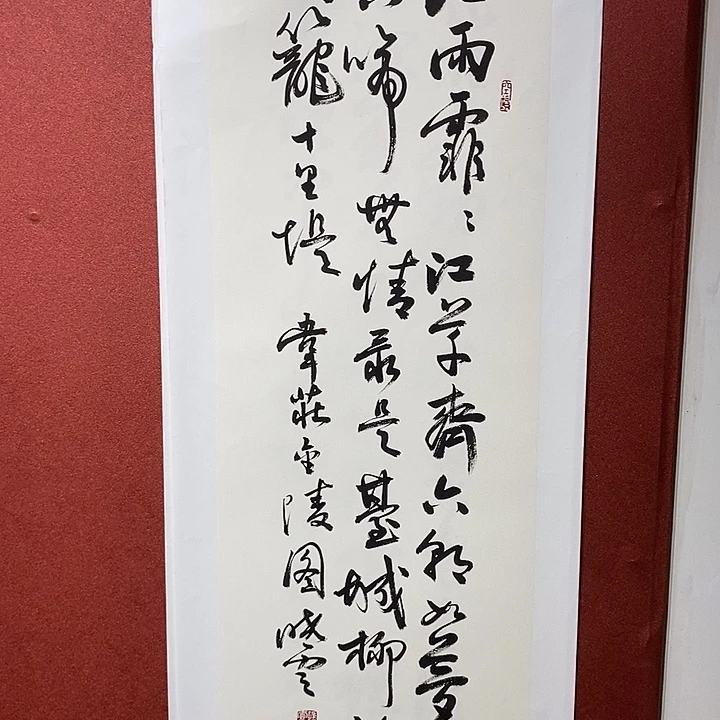 雨霏〻江草齊六朝如夢
啼無情最是臺城柳
籠十里堤 韋莊金陵圖曉雲